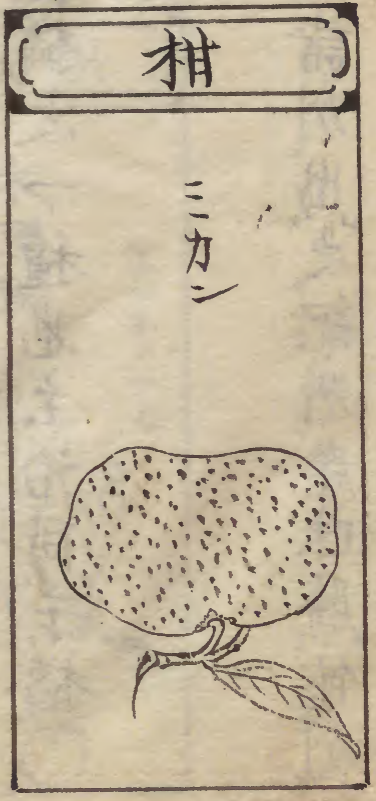 柑
ミカン